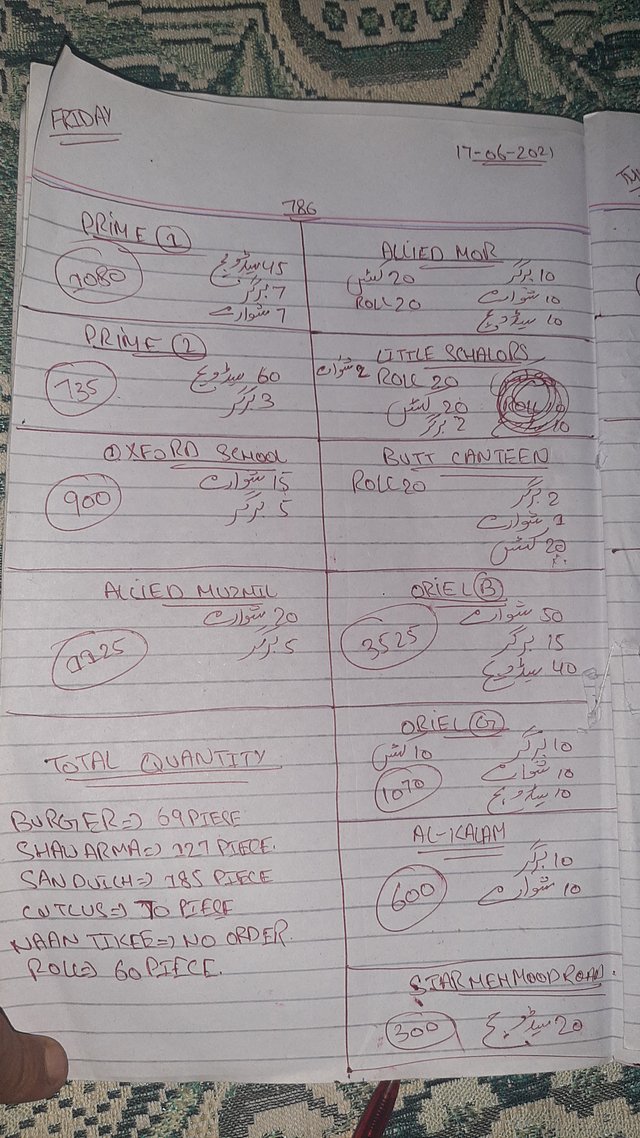 FRIDAY
17-06-2021
786
PRIME ①
1080
45 سینڈوچ
7 برگر
7 شوارمے
PRIME ②
735
60 سینڈوچ
3 برگر
OXFORD SCHOOL
900
15 شوارمے
5 برگر
ALLIED MUZMIL
1125
20 شوارمے
5 برگر
TOTAL QUANTITY
BURGER=> 69 PIESE
SHAWARMA=> 127 PIECE.
SANDWICH=> 185 PIECE
CUTLUS=> 70 PIESE
NAAN TIKEE=> NO ORDER.
ROLL=> 60 PIECE.
ALLIED MOR
20 کٹلس 10 برگر
ROLL 20 10 شوارمے
10 سینڈوچ
LITTLE SCHALORS
ROLL 20
20 کٹلس
2 برگر
BUTT CANTEEN
ROLL 20
2 برگر
شوارمے
20 کٹلس
ORIEL Ⓑ
3525
50 شوارمے
15 برگر
40 سینڈوچ
ORIEL Ⓖ
10 کٹلس 10 برگر
1070 10 شوارمے
10 سینڈوچ
AL-KALAM
600
10 برگر
10 شوارمے
STAR MEHMOOD ROAD.
300 20 سینڈوچ